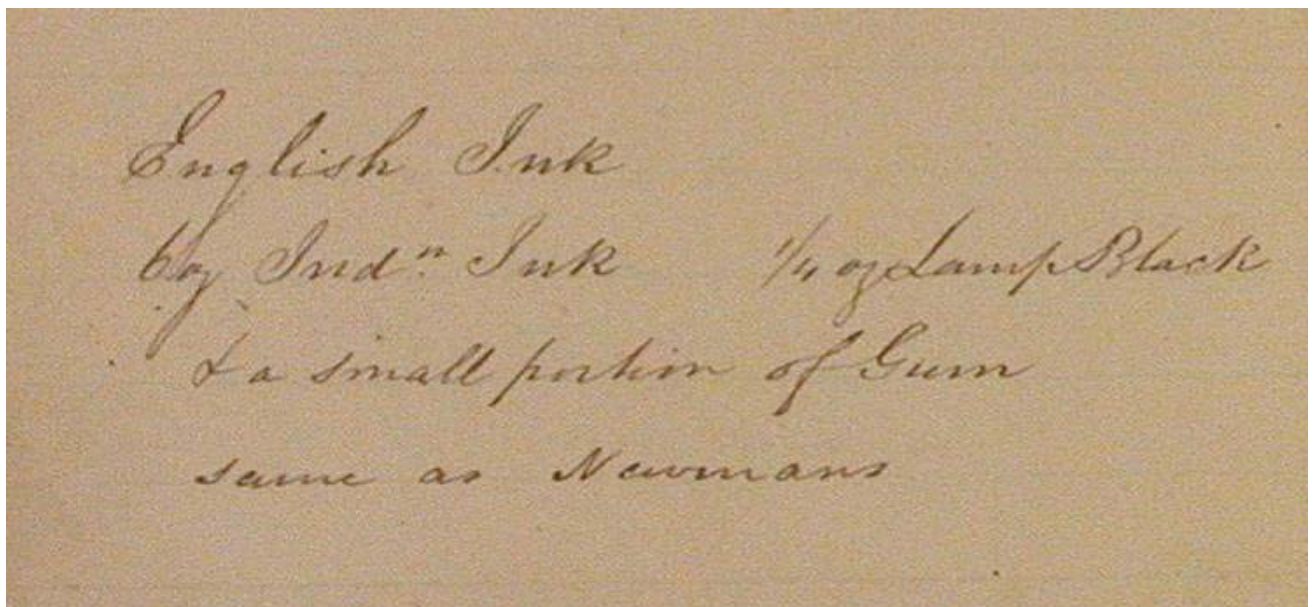 English Ink
6 oz Indn. Ink 1/4 oz Lamp Black
& a small portion of Gum
same as Newmans